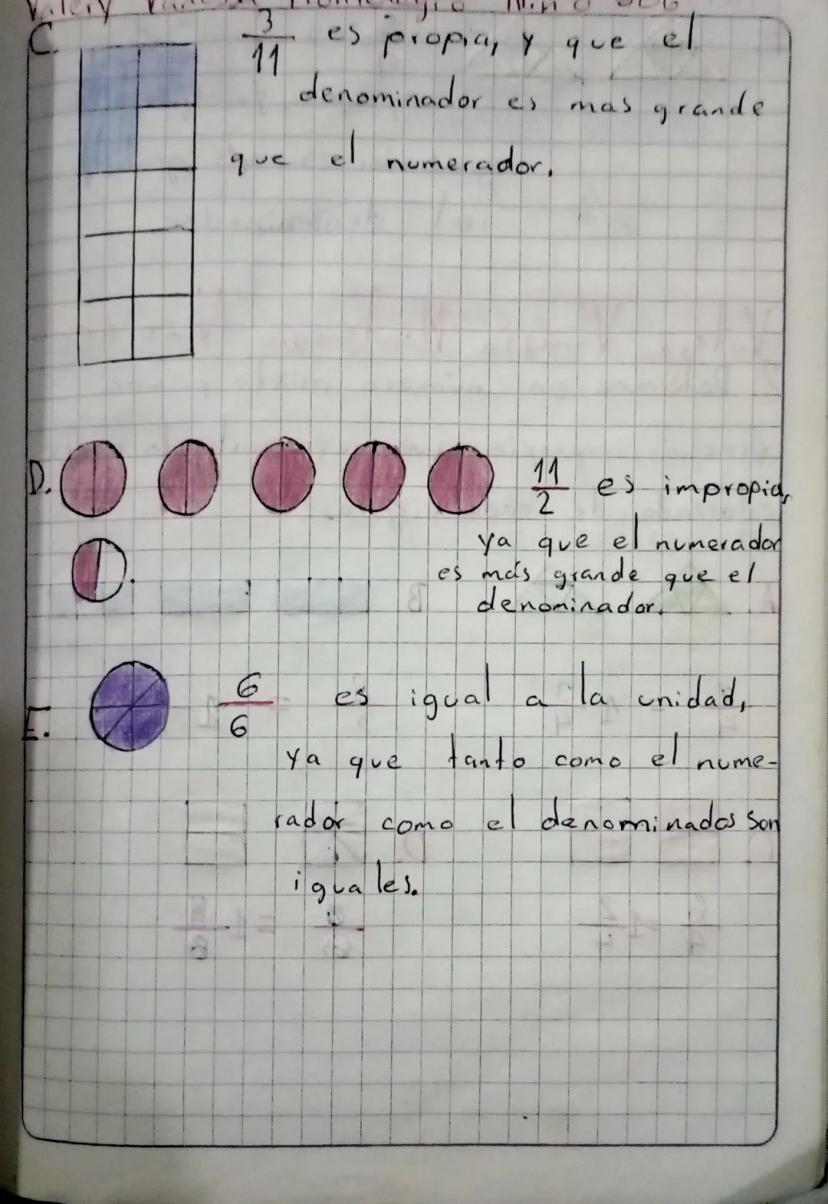 C. 3/11 es propia, y que el
denominador es mas grande
que el numerador.
D. 11/2 es impropia,
ya que el numerador
es más grande que el
denominador.
E. 6/6 es igual a la unidad,
ya que tanto como el nume-
rador como el denominados son
iguales.